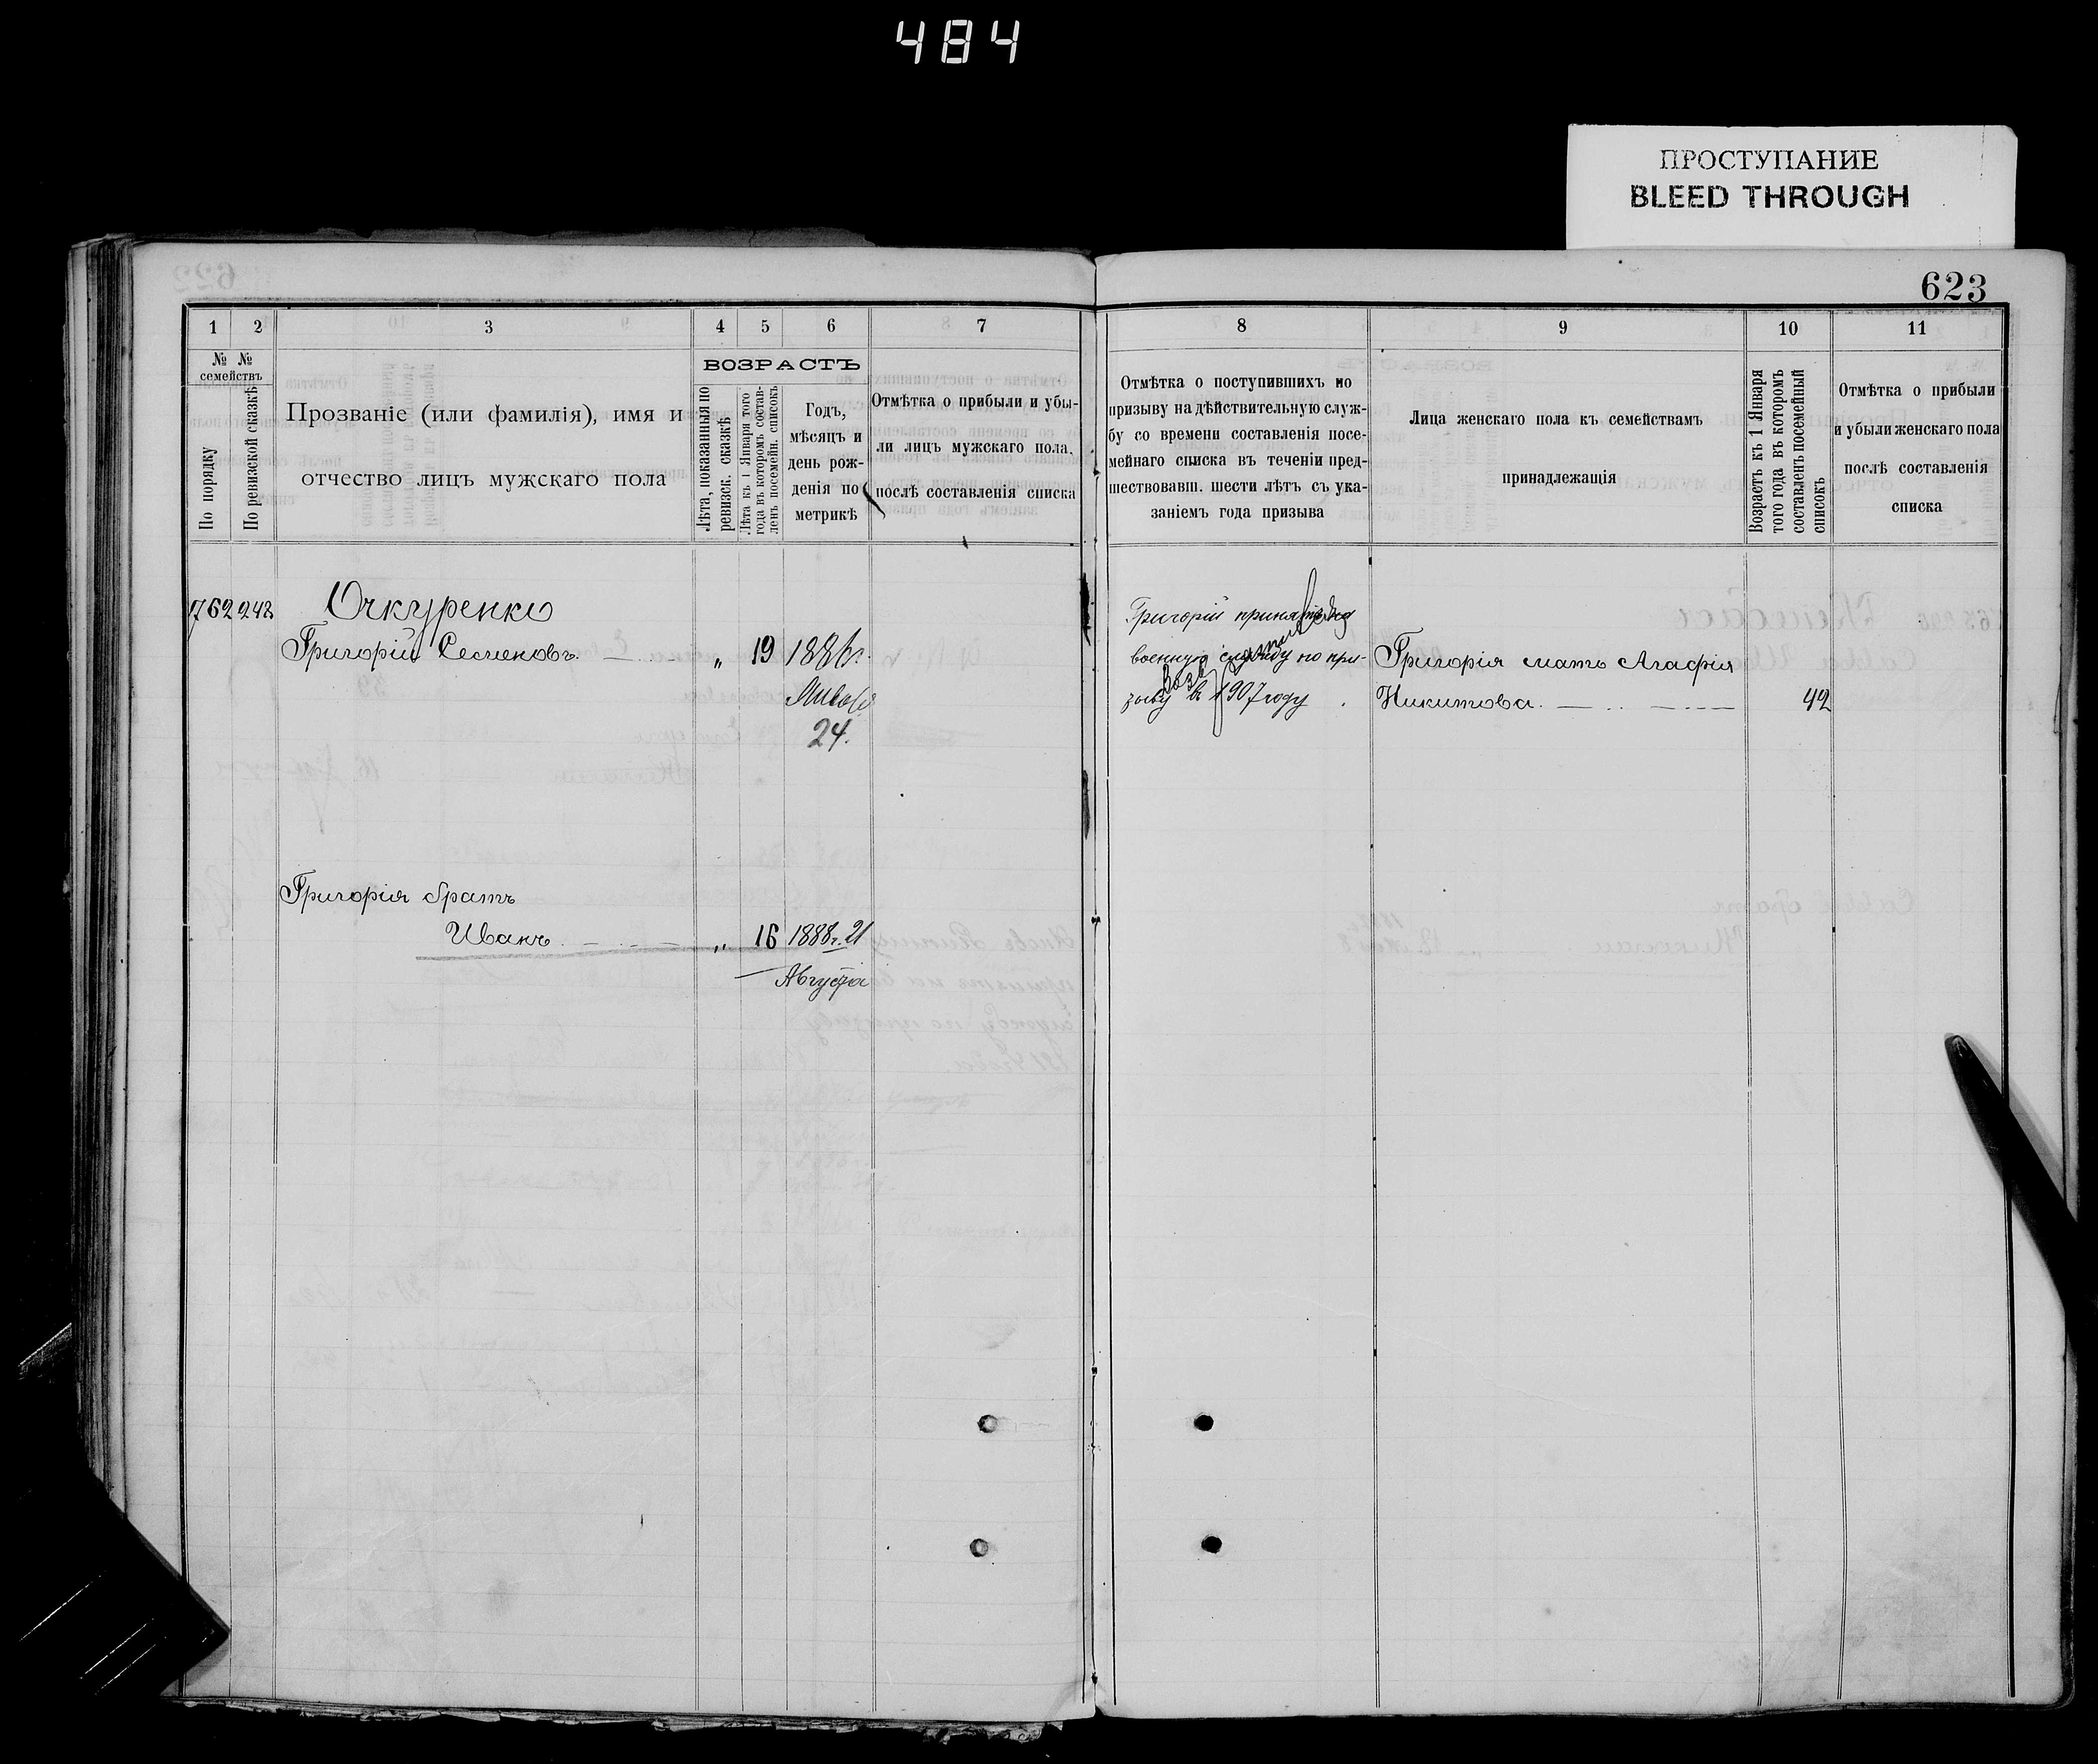 484
ПРОСТУПАНИЕ
BLEED THROUGH
623
1 2 3 4 5 6 7
№ № семействъ
По порядку
По ревизской сказкѣ
Прозваніе (или фамилія), имя и
отчество лицъ мужскаго пола
ВОЗРАСТЪ
Лѣта, показанныя по
ревизск. сказкѣ
Лѣта къ 1 Января того
года въ которомъ состав-
ленъ посемейн. списокъ
Годъ,
мѣсяцъ и
день рож-
денія по
метрикѣ
Отмѣтка о прибыли и убы-
ли лицъ мужскаго пола,
послѣ составленія списка
8 9 10 11
Отмѣтка о поступившихъ по
призыву на дѣйствительную служ-
бу со времени составленія посе-
мейнаго списка въ теченіи пред-
шествовавш. шести лѣтъ съ ука-
заніемъ года призыва
Лица женскаго пола къ семействамъ
принадлежащія
Возрастъ къ 1 Января
того года въ которомъ
составленъ посемейный
списокъ
Отмѣтка о прибыли
и убыли женскаго пола
послѣ составленія
списка
762 248
Очкуренко
Григорій Семеновъ. „ 19 1886г.
24.
Григорія братъ
Иванъ „ 16 1888г. 21
Августа
Григорій принятъ на
военную службу по при-
зыву въ 1907 году
Григорія мать Агафія
Никитова. 42